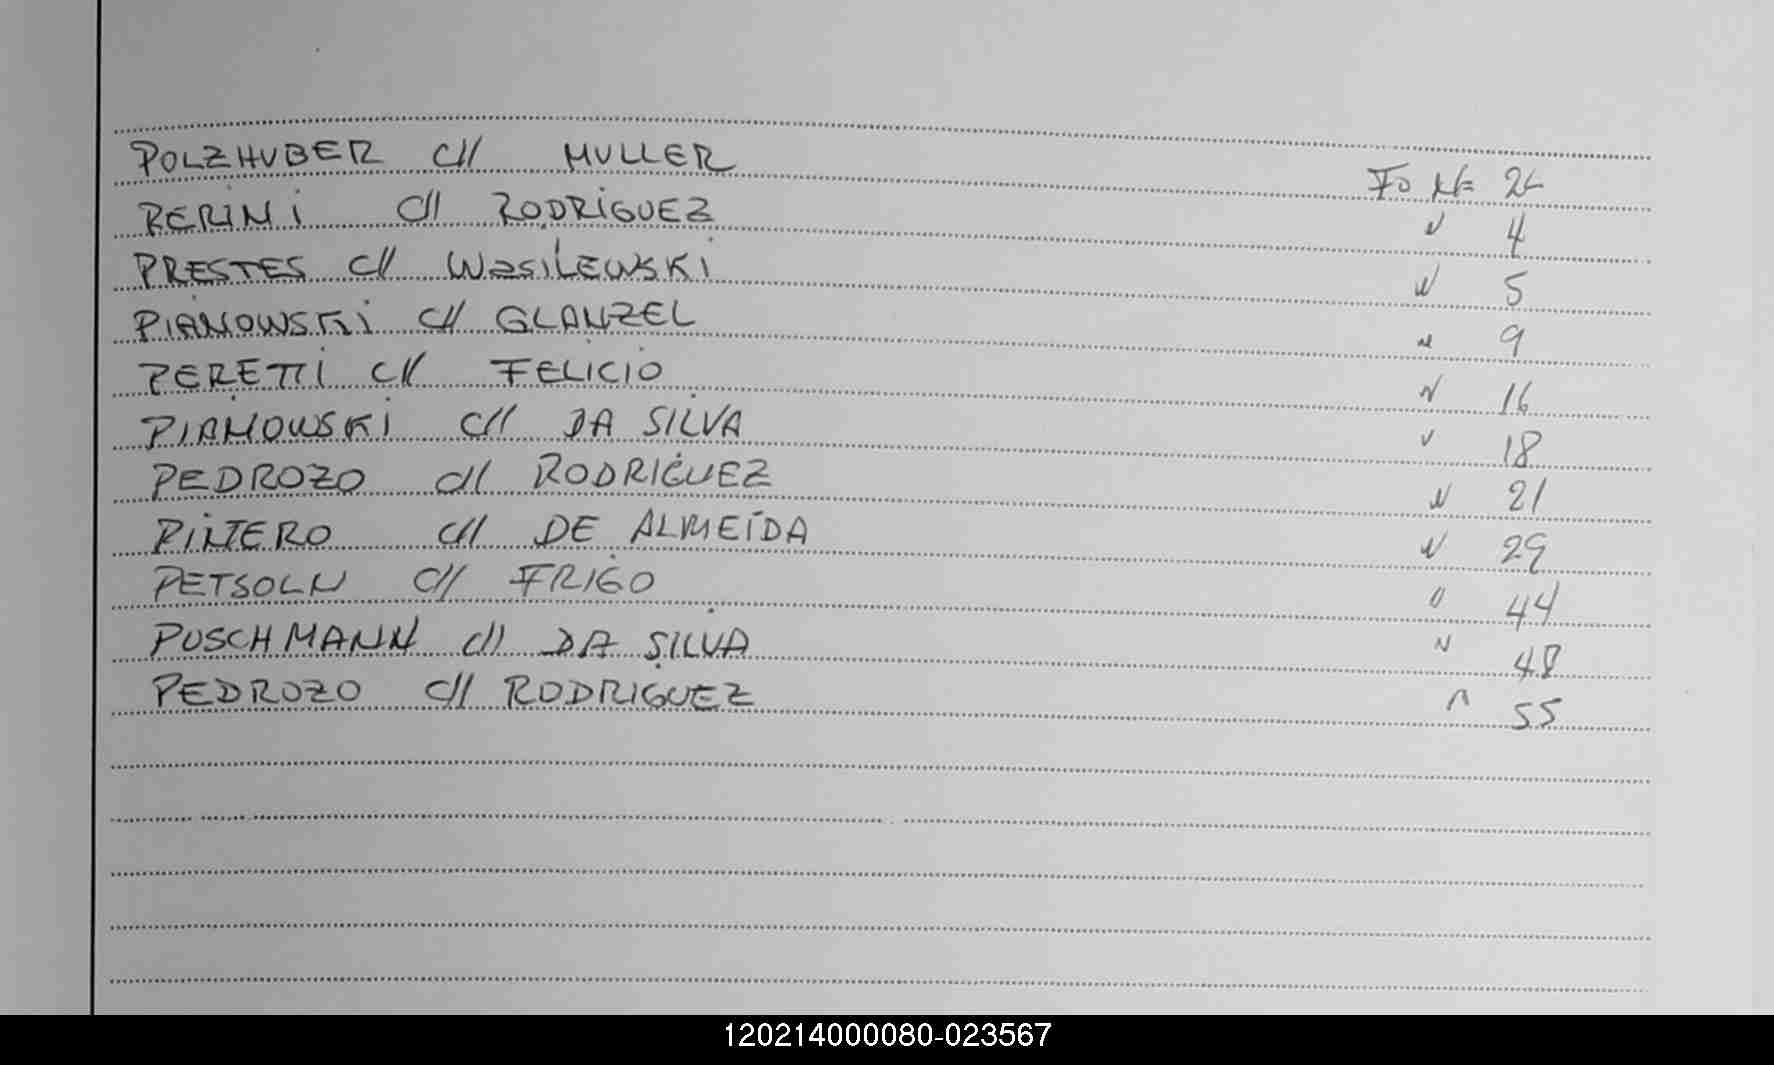 POLZHUBER C// MULLER Fo Nº 2
PERINI C// RODRIGUEZ " 4
PRESTES C// WASILEWSKI " 5
PIANOWSKI C// GLANZEL " 9
PERETTI C// FELICIO " 16
PIANOWSKI C// DA SILVA " 18
PEDROZO C// RODRIGUEZ " 21
PIÑERO C// DE ALMEIDA " 29
PETSOLN C// FRIGO " 44
PUSCHMANN C// DA SILVA " 48
PEDROZO C// RODRIGUEZ " 55
120214000080-023567